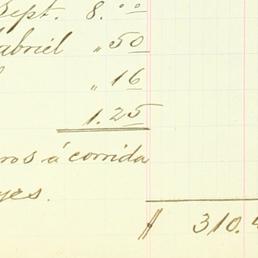 Sept. 8.00
abriel " 50
" 16
1.25
ros á corrida
yes.
$ 310.4